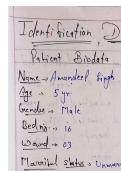 Identification D
Patient Biodata
Name → Amandeep Singh
Age → 5 yr.
Gender → Male
Bed no → 16
Ward → 03
Marrital status → Unmarr